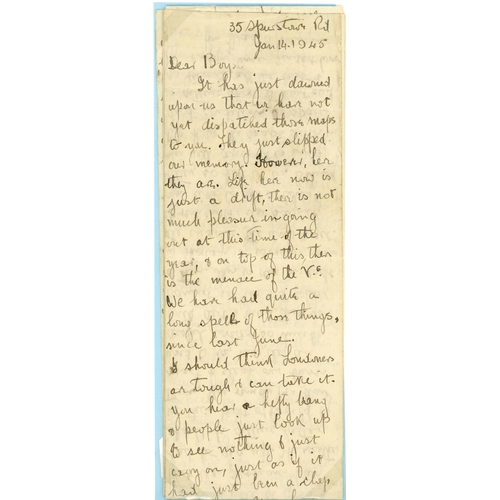 35 Spurstowe Rd
Jan 14. 1945
Dear Boys
It has just dawned
upon us that we have not
yet dispatched those maps
to you. They just slipped
our memory. However, here
they are. Life here now is
just a drift, there is not
much pleasure in going
out at this time of the
year, & on top of this, there
is the menace of the Vs
We have had quite a
long spell of those things,
since last June.
I should think Londoners
are tough & can take it.
You hear a hefty bang
& people just look up
to see nothing & just
carry on, just as if it
had just been a clap